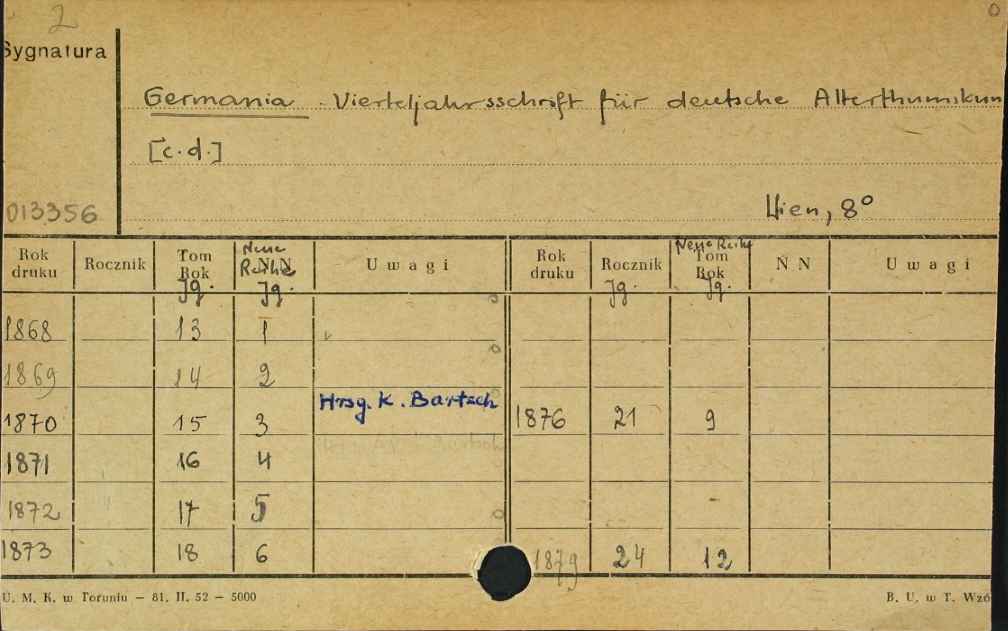 2
Sygnatura
Germania. Vierteljahrsschrift für deutsche Alterthumskun
[c.d.]
013356
Wien, 8°
Rok druku Rocznik Tom Rok Jg. Neue Reihe NN Jg. Uwagi Rok druku Rocznik Jg. Neue Reihe Tom Rok Jg. NN Uwagi
1868 13 1
1869 14 2
1870 15 3 Hrsg. K. Bartsch 1876 21 9
1871 16 4
1872 17 5
1873 18 6 1879 24 12
U. M. K. w Toruniu — 81. II. 52 — 5000
B. U. w T. Wzó